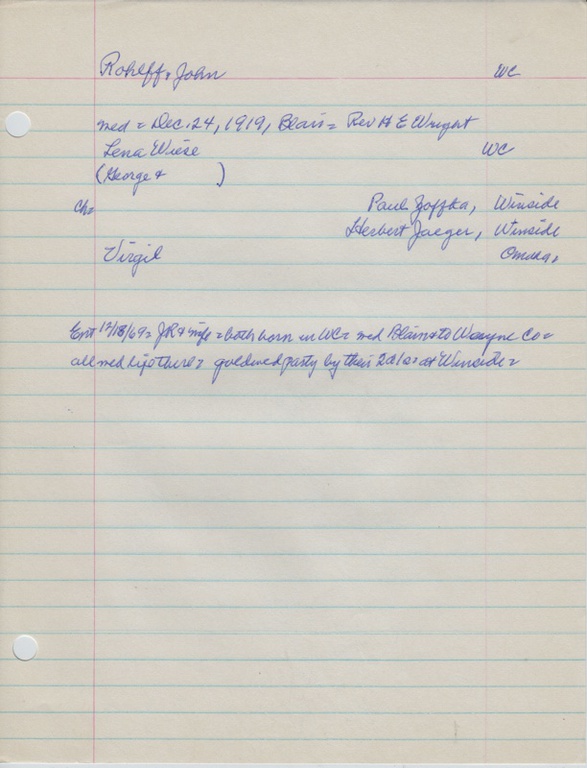 Rohlff, John WC
med = Dec. 24, 1919, Blair = Rev H E Wright
Lena Wiese WC
(George + )
Ch=
Paul Zoffka, Winside
Herbert Jaeger, Winside
Virgil Omaha,
Ent 12/18/69= JR + wife = both born in WC= med Blair + to Wayne Co=
all med life there = goldwed party by their 2 da's= at Winside=